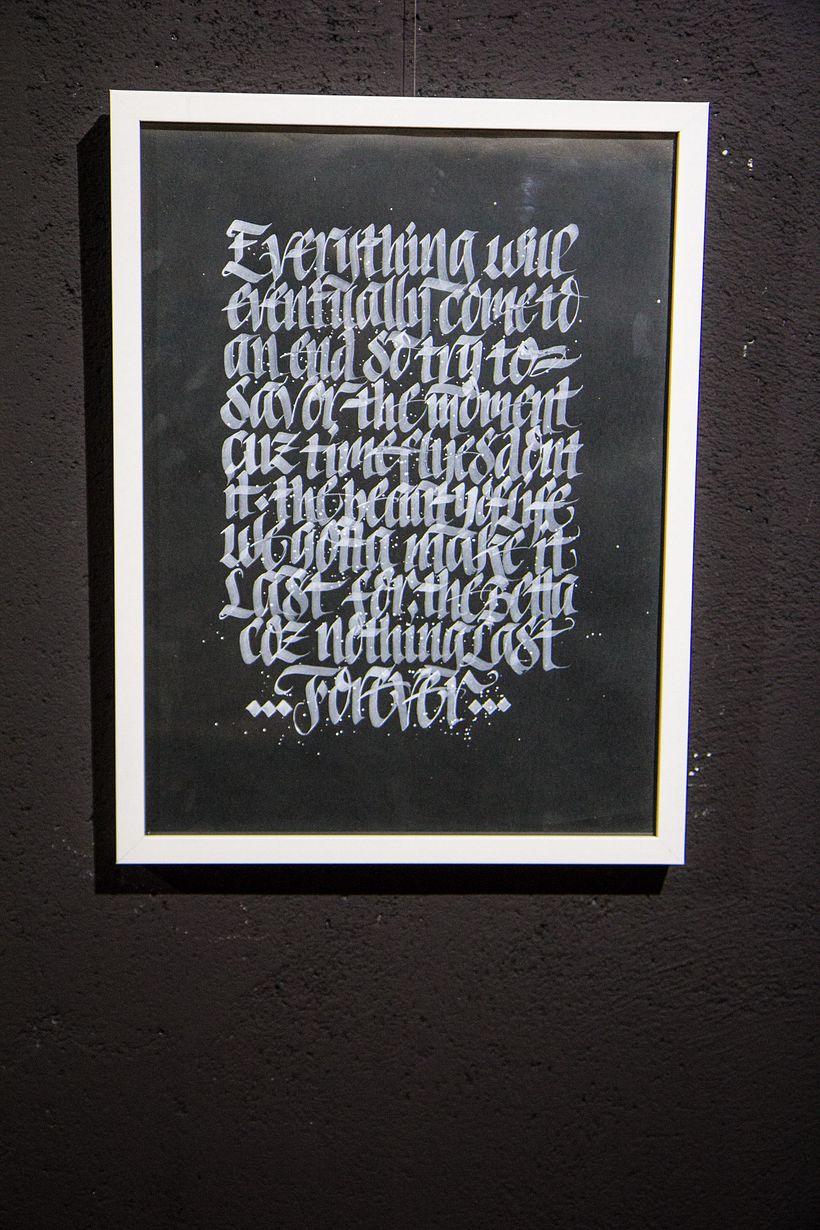 Everything will
eventually come to
an end so try to
savor the moment
cuz time flyes dont
it: the beauty of life
we gotta make it
Last for the betta
coz nothing Last
Forever